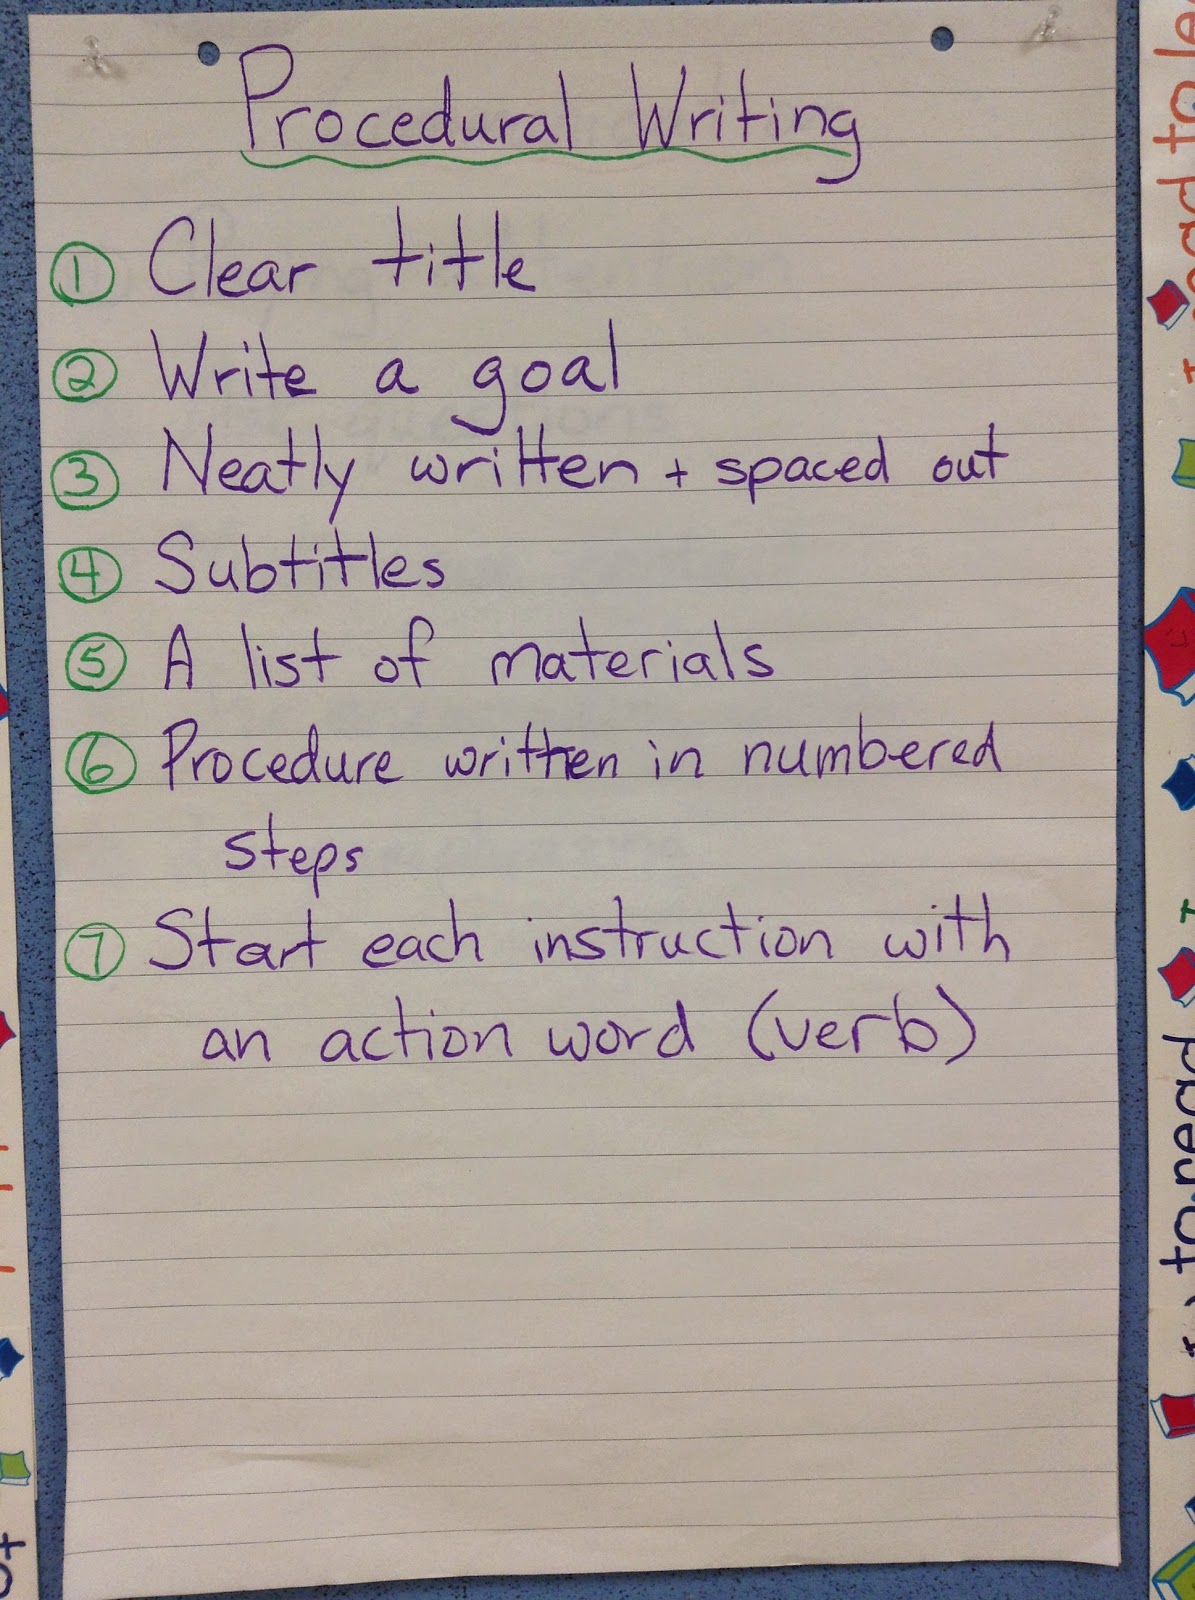 Procedural Writing
1 Clear title
2 Write a goal
3 Neatly written + spaced out
4 Subtitles
5 A list of materials
6 Procedure written in numbered
steps
7 Start each instruction with
an action word (verb)
to read